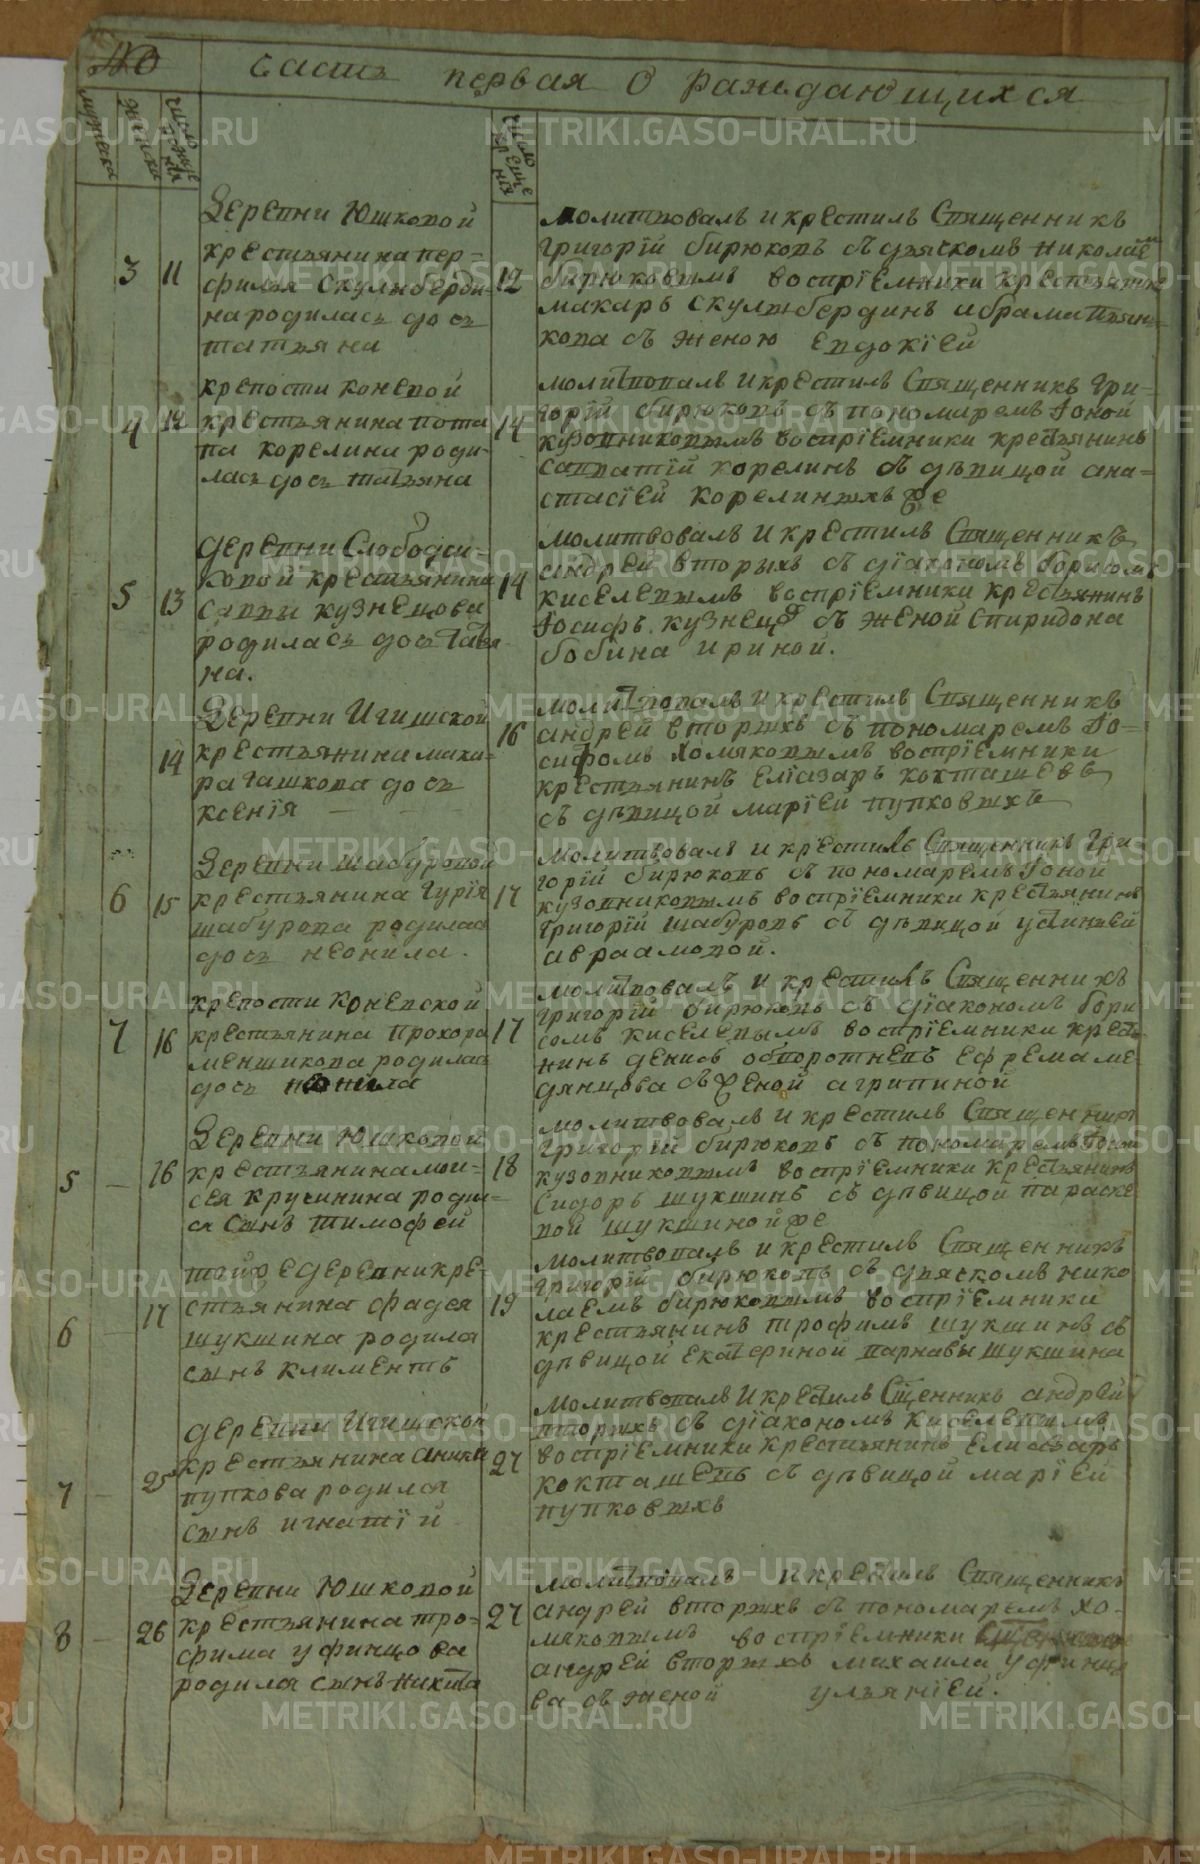 часть первая О раждающихся
мужеска
женска
число рожде нїя
число креще нїя
3
11
Деревни Юшковой
крестьянина пер-
филья Скулыберди-
на родилась дочь
татьяна
12
молитвовалъ и крестилъ Священникъ
григорїй бирюковъ съ дьячкомъ николаїе
бирюковымъ воспрїемники крестьянин
макаръ скулыбердинъ абрама пьян-
кова съ женою евдокїей
4
12
крепости коневой
крестьянина пота
па корелина роди-
лась дочь татьяна
14
молитвовалъ и крестилъ Священникъ гри-
горїй бирюковъ съ пономаремъ Їоной
кузовниковымъ воспрїемники крестьянинъ
савватїй корелинъ съ девицой ана-
стасїей корелиныхъ же
5
13
деревни Слободчи-
ковой крестьянина
саввы кузнецова
родилась дочь татья-
на.
14
молитвовалъ и крестилъ Священникъ
андрей вторыхъ съ дїакономъ борисомъ
киселевымъ воспрїемники крестьянинъ
Їосифъ кузнецов съ женой спиридона
бобина ириной.
14
Деревни Игишской
крестьянина мака-
ра гашкова дочь
ксенїя
16
молитвовалъ и крестилъ Священникъ
андрей вторыхъ съ пономаремъ Їо-
сифомъ хомяковымъ воспрїемники
крестьянинъ елїазаръ кокташевъ
съ девицой марїей пупковыхъ
6
15
Деревни шабуровой
крестьянина гурїя
шабурова родилась
дочь неонила.
17
молитвовалъ и крестилъ Священникъ гри
горїй бирюковъ съ пономаремъ Їоной
кузовниковымъ воспрїемники крестьянинъ
григорїй шабуровъ съ девицой устиньей
авраамовой.
7
16
крепости коневской
крестьянина прохора
меншикова родилась
дочь неонила
17
молитвовалъ и крестилъ Священникъ
григорїй бирюковъ съ дїакономъ бори
сомъ киселевымъ воспрїемники кресть
нинъ денисъ оборотневъ ефрема ме-
дянцова съ женой агрипиной
5
16
Деревни Юшковой
крестьянина мои-
сея кручинина родил-
ся сынъ тимофей
18
молитвовалъ и крестилъ Священникъ
григорїй бирюковъ съ пономаремъ Їоной
кузовниковымъ воспрїемники крестьянинъ
Сидоръ шукшинъ съ девицой параске
вой шукшиной же
6
17
той же деревни кре-
стьянина фадея
шукшина родился
сынъ климентъ
19
молитвовалъ и крестилъ Священникъ
григорїй бирюковъ съ дьячкомъ нико
лаемъ бирюковымъ воспрїемники
крестьянинъ трофимъ шукшинъ съ
девицой екатериной варнавы шукшина
7
25
деревни Игишской
крестьянина аники
пупкова родился
сынъ игнатїй
27
молитвовалъ и крестилъ Сщенникъ андрей
вторыхъ съ дїакономъ киселевымъ
воспрїемники крестьянинъ елиазаръ
кокташевъ съ девицой марїей
пупковыхъ
8
26
Деревни Юшковой
крестьянина тро-
фима уфинцова
родился сынъ никита
27
молитвовалъ и крестилъ Священникъ
андрей вторыхъ съ пономаремъ хо-
мяковымъ воспрїемники
андрей вторыхъ михаила уфинцо
ва съ женой ульянїей.
METRIKI.GASO-URAL.RU